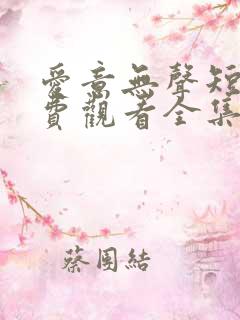 愛意無聲短
費觀看全集
蔡團結